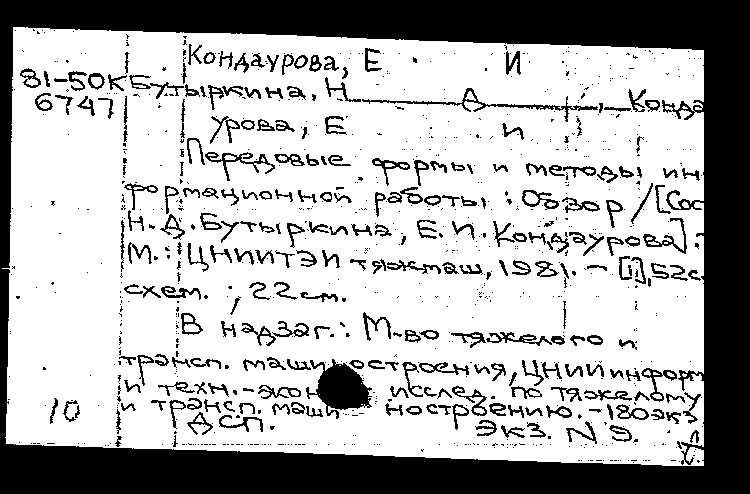 Кондаурова, Е . И
81-50К Бутыркина, Н Д , Конда
6747
урова, Е И
Передовые формы и методы ин-
формационной работы : Обзор / [Сос
Н.Д. Бутыркина, Е.И. Кондаурова].
М.: ЦНИИТЭИтяжмаш, 1981. - [1], 52с.
схем. ; 22см.
В надзаг.: М-во тяжелого и
трансп. машиностроения, ЦНИИ информ
и техн.-экон исслед. по тяжелому
и трансп. маши ностроению. - 180экз
10 ДСП. Экз. N 9.